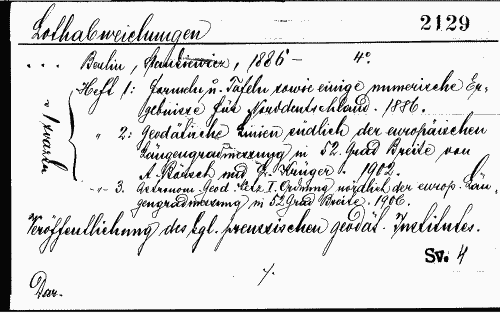 Lothabweichungen 2129
... Berlin, Stankiewicz, 1886 – 4°.
Heft 1: Formeln u. Tafeln sowie einige numerische Er-
gebnisse für Norddeutschland. 1886.
" 2: Geodätische Linien südlich der europäischen
Längengradmessung in 52. Grad Breite von
A. Börsch und L. Krüger. 1902.
" 3. Astronom. Geod. Netz I. Ordnung nördlich der europ. Län-
gengradmessung in 52 Grad Breite. 1906.
Veröffentlichung des kgl. preussischen geodät. Institutes.
Sv. 4
./.